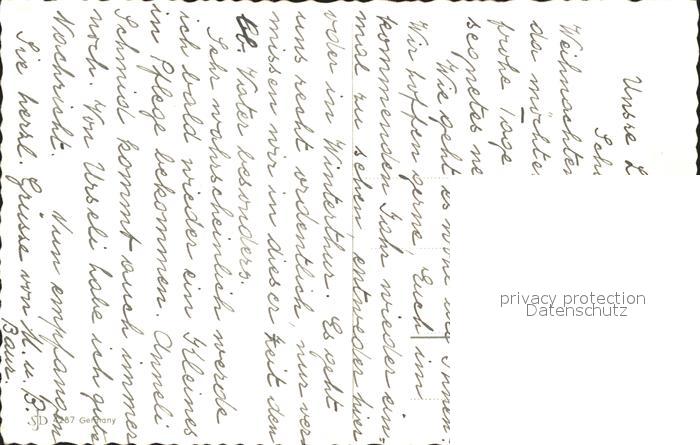 Unsre L
Sch
Weihnachten
da möchte
frohe Tage
segnetes ne
Wie geht es
Wir hoffen gerne, Euch im
kommenden Jahr wieder ein-
mal zu sehen entweder hier
oder in Winterthur. Es geht
uns recht ordentlich, nur ver-
missen wir in dieser Zeit den
lb. Vater besonders.
Sehr wahrscheinlich werde
ich bald wieder ein Kleines
in Pflege bekommen. Anneli
Schmid kommt auch immer
noch. Von Urseli habe ich gute
Nachricht. Nun empfangen
Sie herzl. Grüsse von M. u. B.
Baur.
privacy protection
Datenschutz
87 Germany